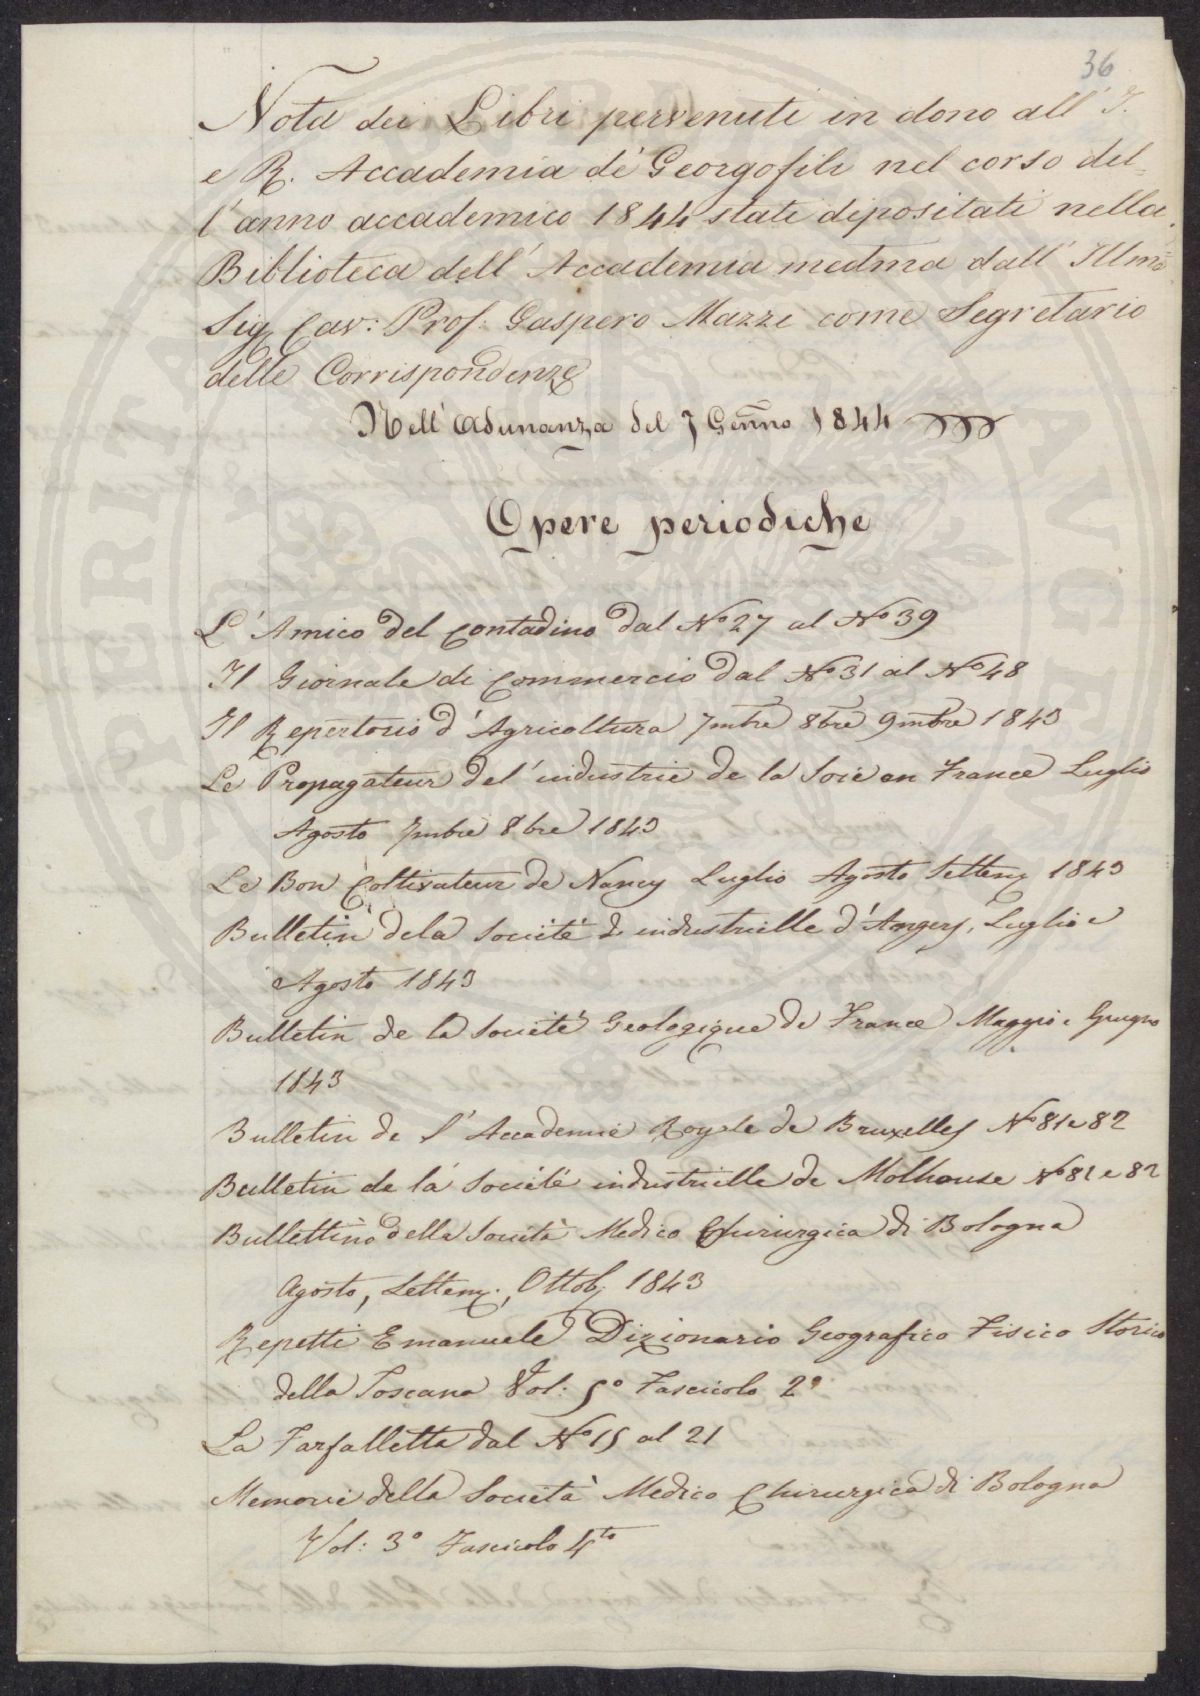 36
Nota dei Libri pervenuti in dono all' I.
e R. Accademia de' Georgofili nel corso del-
l'anno accademico 1844 stati depositati nella
Biblioteca dell' Accademia medma dall' Illmo
Sig. Cav: Prof: Gaspero Mazzi come Segretario
delle Corrispondenze
Nell' Adunanza del 7 Genno 1844
Opere periodiche
L' Amico del Contadino dal No 27 al No 39
Il Giornale di Commercio dal No 31 al No 48
Il Repertorio d' Agricoltura 7mbre 8bre 9mbre 1843
Le Propagateur del' industrie de la Soie en France Luglio
Agosto 7mbre 8bre 1843
Le Bon Coltivateur de Nancy Luglio Agosto Settem. 1843
Bulletin dela Société industrielle d' Angers, Luglio e
Agosto 1843
Bulletin de la Société Geologique de France Maggio e Giugno
1843
Bulletin de l' Academie Royale de Bruxelles No 81 e 82
Bulletin de la Société industrielle de Molhouse No 81 e 82
Bullettino della Società Medico Chirurgica di Bologna
Agosto, Settem., Ottob. 1843
Repetti Emanuele Dizionario Geografico Fisico Storico
della Toscana Vol: 5o Fascicolo 2o
La Farfalletta dal No 15 al 21
Memorie della Società Medico Chirurgica di Bologna
Vol: 3o Fascicolo 4to